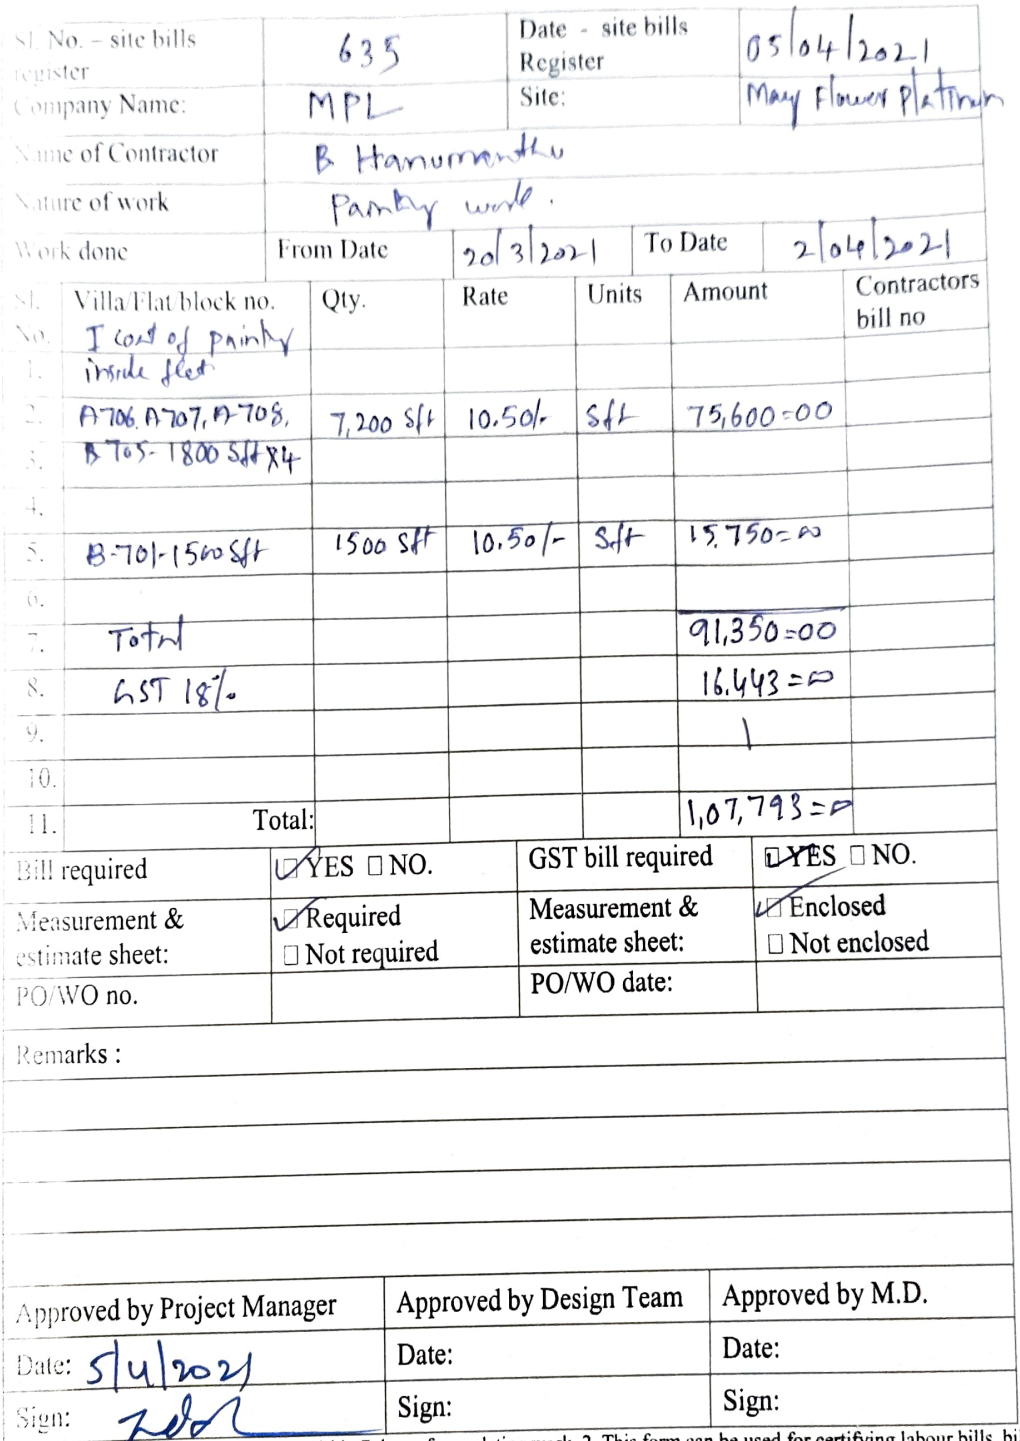 Sl. No. – site bills register 635 Date - site bills Register 05/04/2021
Company Name: MPL Site: May Flower Platinum
Name of Contractor B Hanumanthu
Nature of work Painting work.
Work done From Date 20/3/2021 To Date 2/04/2021
Sl. No. Villa/Flat/block no. Qty. Rate Units Amount Contractors bill no
I coat of painting
1. inside flat
2. A706, A707, A-708, 7,200 Sft 10.50/- Sft 75,600=00
3. B 705- 1800 Sft X4
4.
5. B-701-1500 Sft 1500 Sft 10.50/- Sft 15,750=00
6.
7. Total 91,350=00
8. GST 18% 16,443=00
9.
10.
11. Total: 1,07,793=00
Bill required YES NO. GST bill required YES NO.
Measurement & estimate sheet: Required Not required Measurement & estimate sheet: Enclosed Not enclosed
PO/WO no. PO/WO date:
Remarks :
Approved by Project Manager Approved by Design Team Approved by M.D.
Date: 5/4/2021 Date: Date:
Sign: Sign: Sign:
2. This form can be used for certifying labour bills, bi